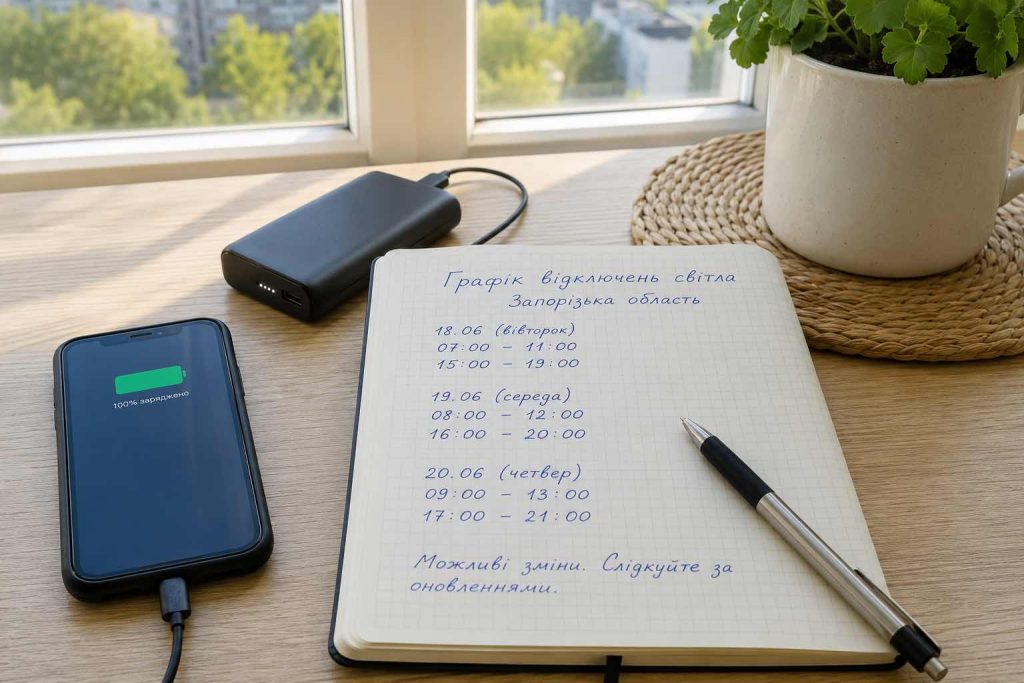 Графік відключень світла
Запорізька область
18.06 (вівторок)
07:00 – 11:00
15:00 – 19:00
19.06 (середа)
08:00 – 12:00
16:00 – 20:00
20.06 (четвер)
09:00 – 13:00
17:00 – 21:00
Можливі зміни. Слідкуйте за
оновленнями.
100% заряджено